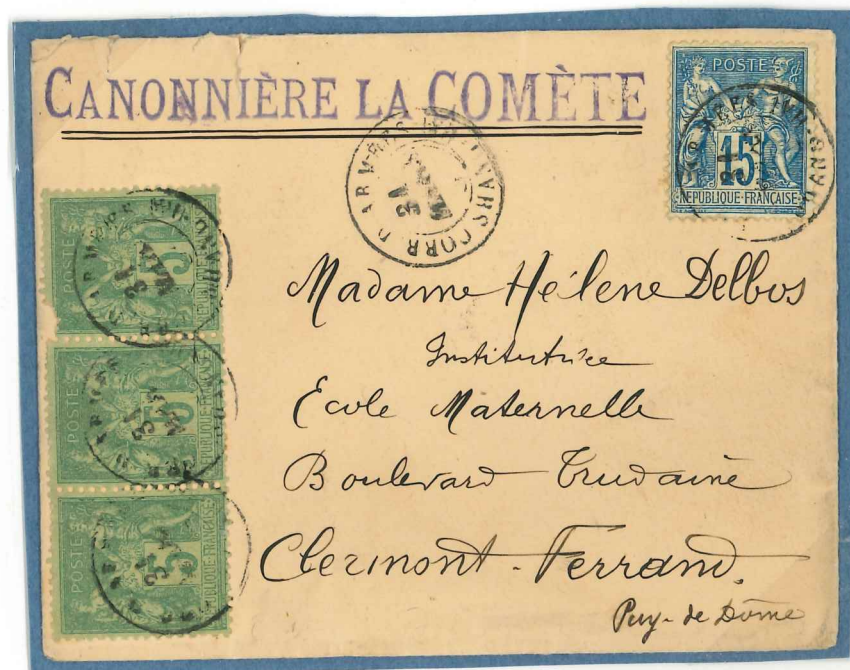 CANONNIÈRE LA COMÈTE
POSTE
15
REPUBLIQUE FRANÇAISE
CORR. D. ARMEES
31
MARS
POSTE
5
REPUBLIQUE FRANÇAISE
POSTE
5
REPUBLIQUE FRANÇAISE
POSTE
5
REPUBLIQUE FRANÇAISE
Madame Hélène Delbos
Institutrice
Ecole Maternelle
Boulevard Trudaine
Clermont-Ferrand.
Puy-de Dôme